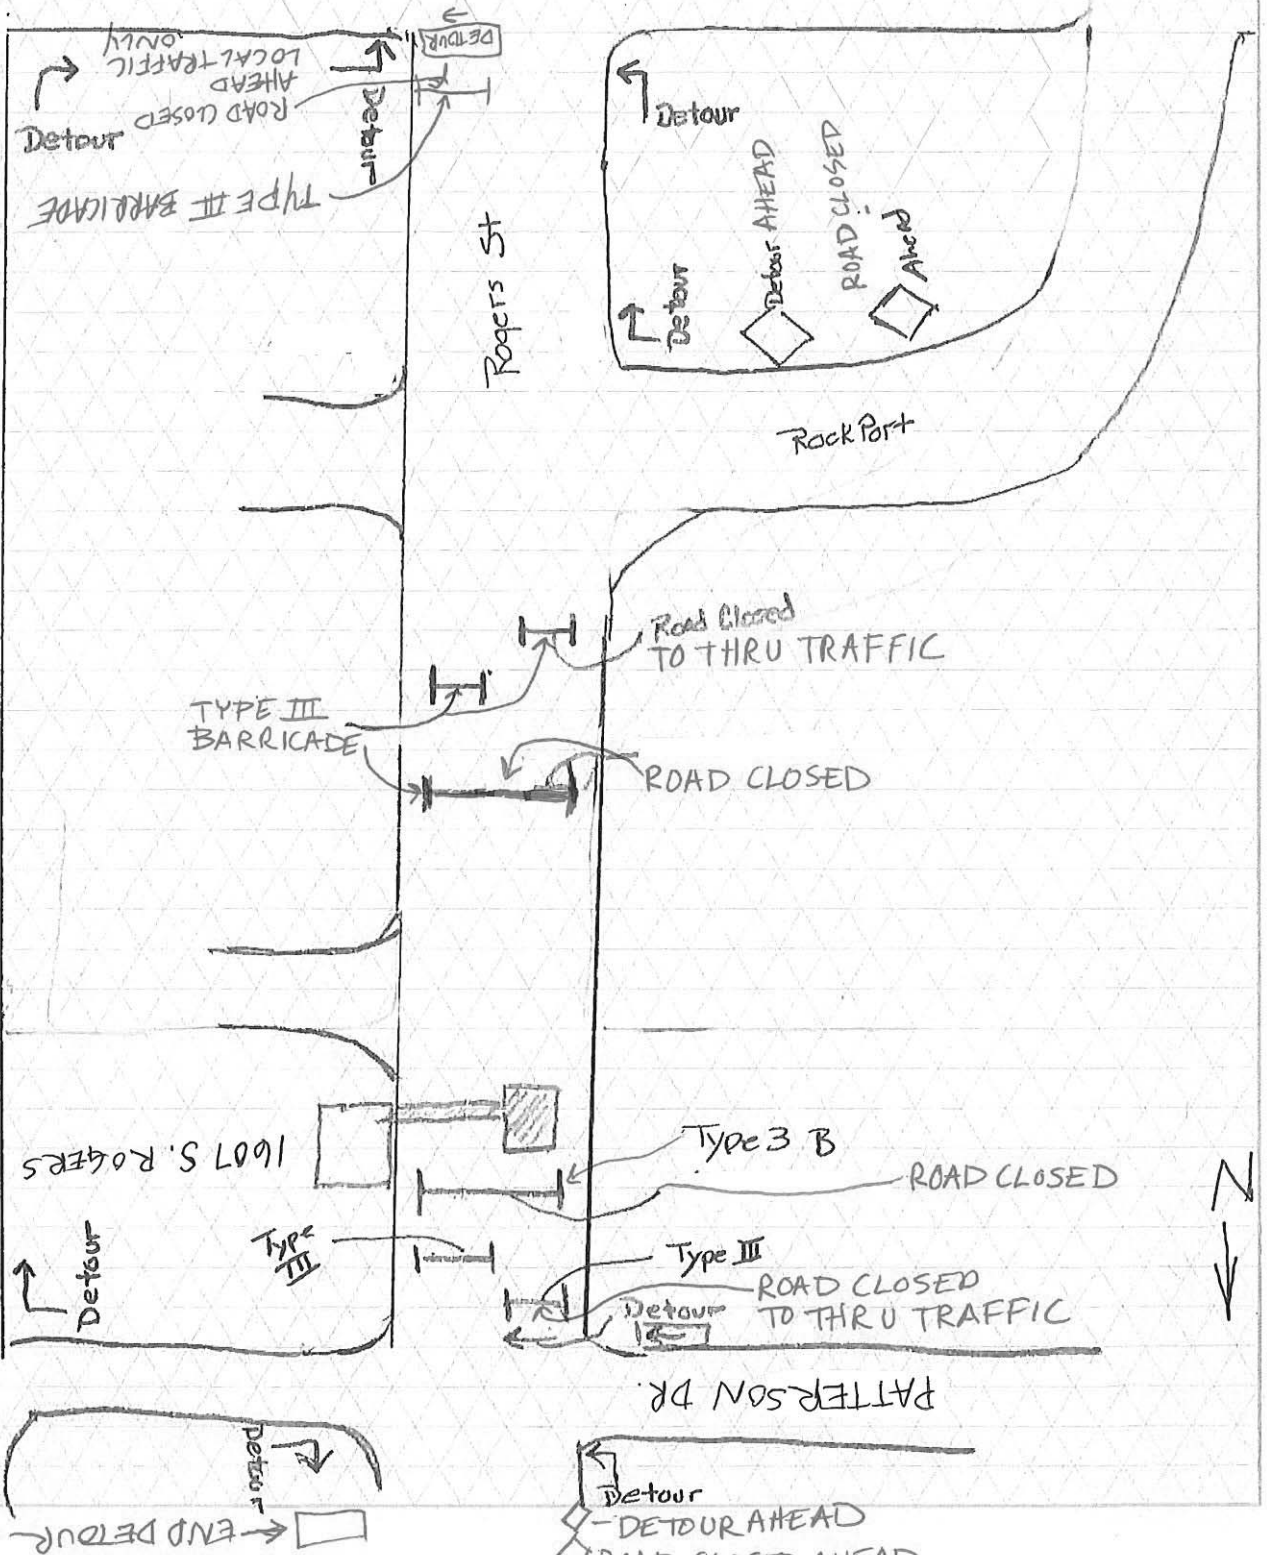 DETOUR
ROAD CLOSED
AHEAD
LOCAL TRAFFIC
ONLY
Detour
Detour
TYPE III BARRICADE
Rogers St
Detour
Detour
Detour AHEAD
ROAD CLOSED
Ahead
RockPort
Road Closed
TO THRU TRAFFIC
TYPE III
BARRICADE
ROAD CLOSED
1607 S. ROGERS
Type 3 B
ROAD CLOSED
Detour
Type
III
Type III
ROAD CLOSED
TO THRU TRAFFIC
Detour
N
PATTERSON DR.
Detour
END DETOUR
Detour
DETOUR AHEAD